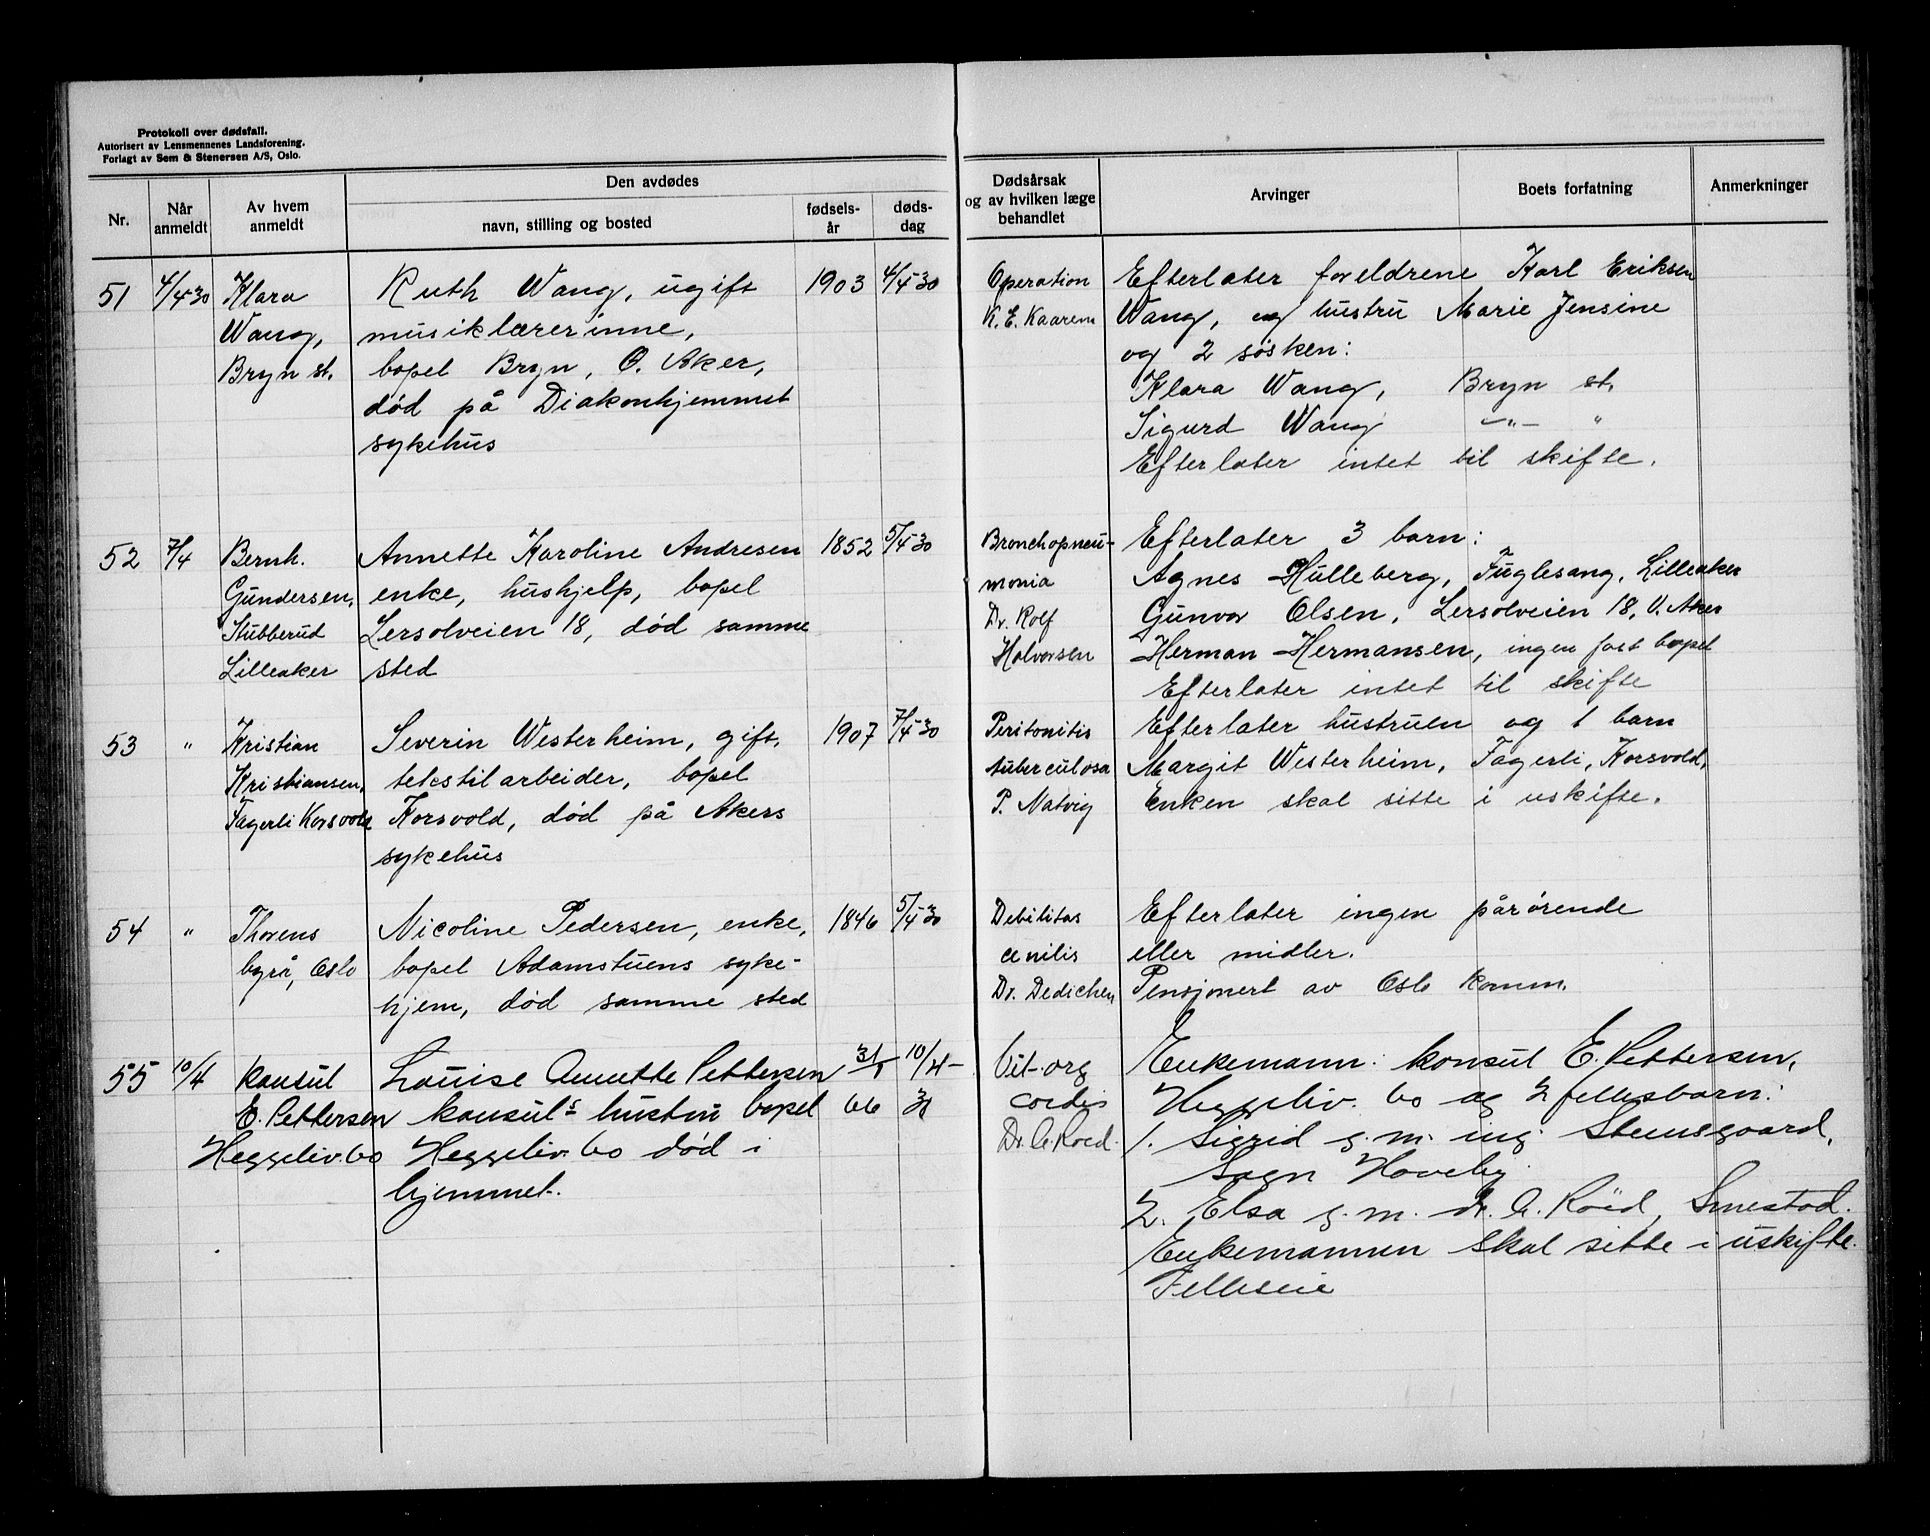 Protokoll over dødsfall.
Autorisert av Lensmennenes Landsforening.
Forlagt av Sem & Stenersen A/S, Oslo.
Nr.
Når anmeldt
Av hvem anmeldt
Den avdødes
navn, stilling og bosted
fødsels-år
døds-dag
Dødsårsak og av hvilken læge behandlet
Arvinger
Boets forfatning
Anmerkninger
51 4/4 30 Klara Ruth Wang, ugift 1903 4/4 30 Operation Efterlater foreldrene Karl Eriksen
Wang, musiklærerinne, K. E. Kaarem Wang, og hustru Marie Jensine
Bryn st. bopel Bryn, Ø. Aker, og 2 søsken:
død på Diakonhjemmet Klara Wang, Bryn st.
sykehus Sigurd Wang -„- „
Efterlater intet til skifte.
52 7/4 Bernh. Annette Karoline Andresen 1852 5/4 30 Bronchopneu- Efterlater 3 barn:
Gundersen, enke, hushjelp, bopel monia Agnes Hulleberg, Fuglesang, Lilleaker
Stubberud Lersolveien 18, død samme Dr. Rolf Gunvor Olsen, Lersolveien 18, V. Aker
Lilleaker sted Halvorsen Herman Hermansen, ingen fast bopel
Efterlater intet til skifte
53 „ Kristian Severin Westerheim, gift, 1907 7/4 30 Peritonitis Efterlater hustruen og 1 barn
Kristiansen, tekstilarbeider, bopel tuberculosa Margit Westerheim, Fagerli, Korsvold,
Fagerli Korsvold Korsvold, død på Akers P. Natvig Enken skal sitte i uskifte.
sykehus
54 „ Thorens Nicoline Pedersen, enke, 1846 5/4 30 Debilitas Efterlater ingen pårørende
byrå, Oslo bopel Adamstuens syke- cenilis eller midler.
hjem, død samme sted Dr. Dedichen Pensjonert av Oslo komm.
55 10/4 konsul Louise Annette Pettersen 31/1 10/4- Vit. org Enkemann: konsul E. Pettersen,
E. Pettersen konsuls hustru bopel 66 30 cordis Heggeliv. 60 og 2 fellesbarn:
Heggeliv. 60 Heggeliv. 60 død i 1. Sigrid g.m. ing. Steensgaard,
hjemmet. Sogn Haveby
2. Elsa g.m. dr. A. Röed, Smestad.
Enkemannen skal sitte i uskifte.
Felleseie